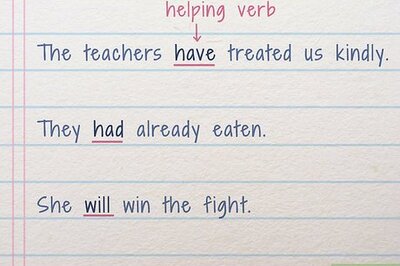 helping verb
The teachers have treated us kindly.
They had already eaten.
She will win the fight.